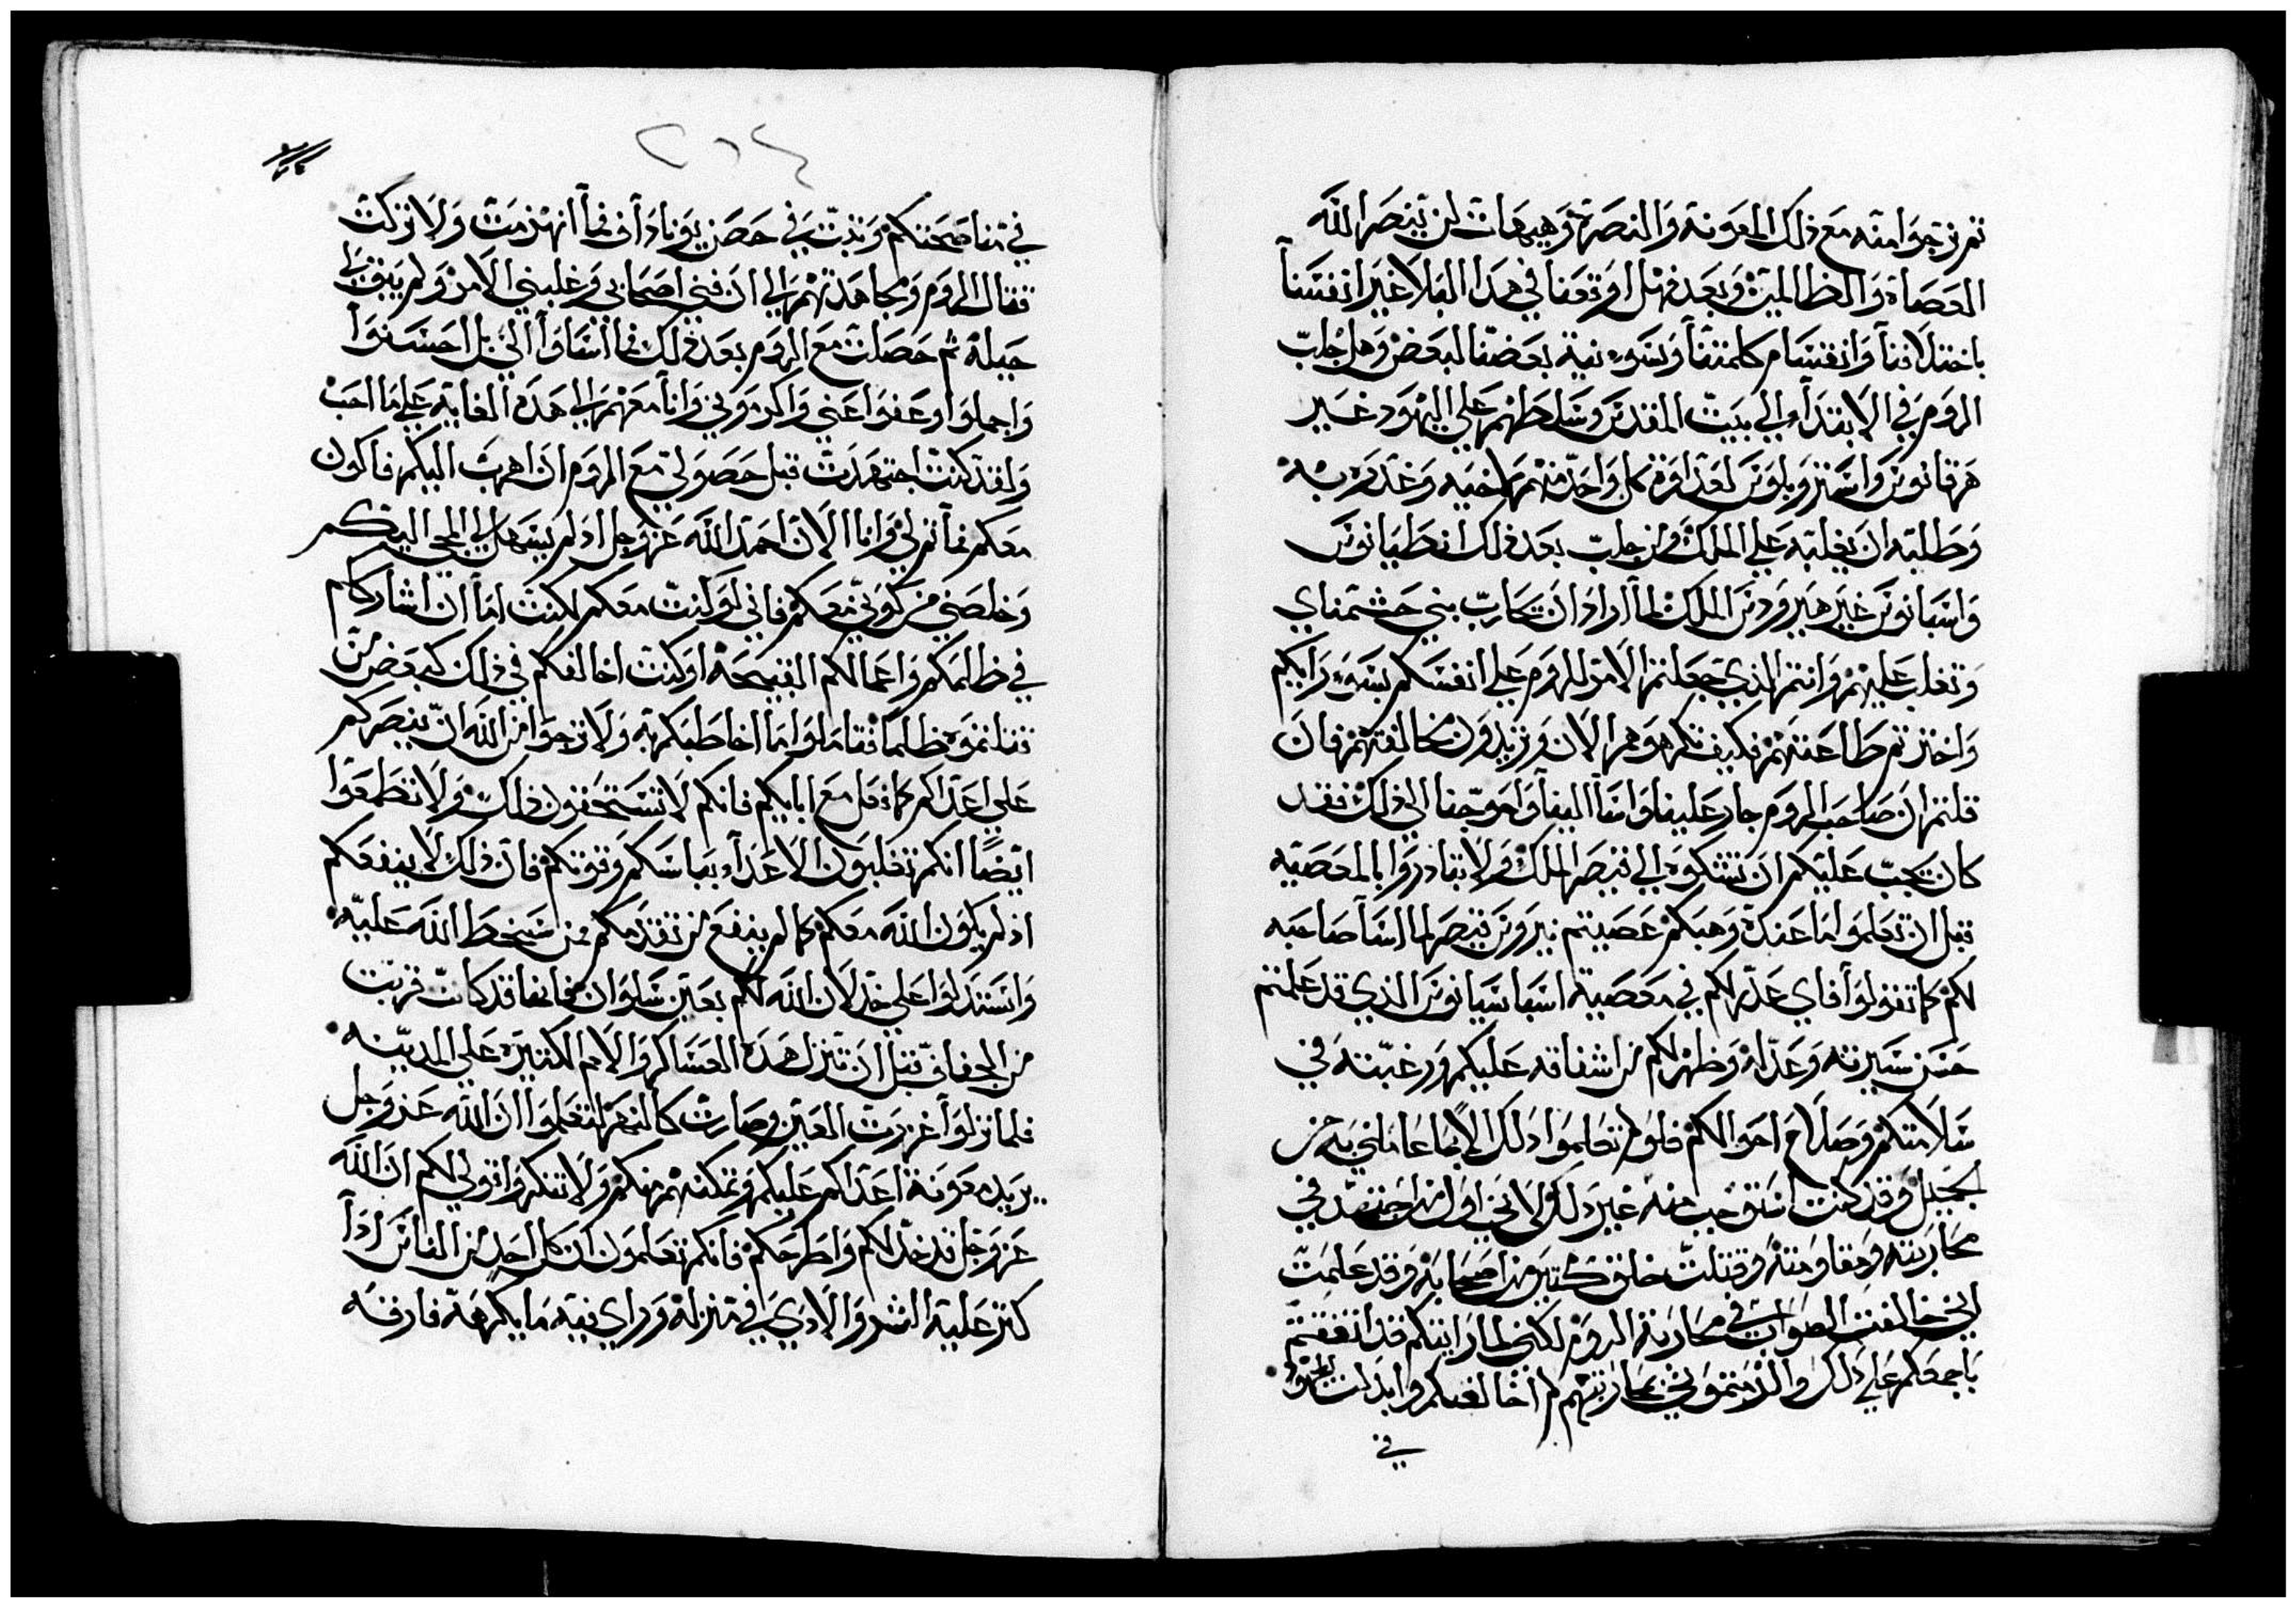 ثم ترجوا منه مع ذلك المعونة والنصرة وهيهات لن ينصر الله
العصاة والظالمين وبعد فهل اوقعنا في هذا البلا غير انفسنا
باختلافنا وانقسام كلمتنا وسوء نية بعضنا لبعض وهل جلب
الروم في الابتداء الي بيت المقدس وسلطهم علي اليهود غير
هرقانوس واستروبلوس لعداوة كل واحد منهم لاخيه وغدره به
وطلبه ان يغلبه علي الملك ومن جلب بعد ذلك انطيانوس
واسيانوس غير هيرودس الملك لما اراد ان يحارب بني حشمناي
وتغلب عليهم وانتم الذي جعلتم الامر للروم علي انفسكم بسوء رايكم
واخترتم طاعتهم فكيف تكرهوهم الان وتريدون مخالفتهم فان
قلتم ان صاحب الروم جار علينا واسا الينا واحوجنا الي ذلك فقد
كان يجب عليكم ان تشكوه الي قيصر الملك ولا تبادروا بالمعصية
قبل ان تعلموا ما عنده وهبكم عصيتم نيرون قيصر لما اسا صاحبه
لكم كما تقولوا فاي عذر لكم في معصية اسباسيانوس الذي قد علمتم
حسن سيرته وعدله وظهر لكم من اشفاقه عليكم ورغبته في
سلامتكم وصلاح احوالكم فلو لم تعلموا ذلك الا بما عاملني به من
الجميل وقد كنت استوجب منه غير ذلك لاني اول من اجتهد في
محاربته ومقاومته وقتلت خلق كتير من اصحابه وقد علمت
اني خالفت الصواب في محاربة الروم لكني لما رايتكم قد اتفقتم
باجمعكم علي ذلك والزمتموني محاربتهم لم اخالفكم وابذلت المجهود
في
٢٦٤
في مناصحتكم وثبت في حصن يوناداف فما انهزمت ولا تركت
قتال الروم ومجاهدتهم الي ان فني اصحابي وغلبني الامر ولم يبق لي
حيلة ثم حصلت مع الروم بعد ذلك فما اساوا الي بل احسنوا
واجملوا وعفوا عني واكرموني وانا معهم الي هذه الغاية علي ما احب
ولقد كنت اجتهدت قبل حصولي مع الروم ان اهرب اليكم فاكون
معكم فما تم لي وانا الان احمد الله عز وجل اذ لم يسهل لي المجي اليكم
وخلصني من كوني معكم فاني لو كنت معكم لكنت اما ان اشارككم
في ظلمكم واعمالكم القبيحة او كنت اخالفكم في ذلك كبعض من
قتلتموه ظلما فتاملوا ما اخاطبكم به ولا ترجوا من الله ان ينصركم
علي اعداكم كما فعل مع ابايكم فانكم لا تستحقون ذلك ولا تطمعوا
ايضا انكم تغلبون الاعداء بباسكم وقوتكم فان ذلك لا ينفعكم
اذ لم يكون الله معكم كما لم ينفع من تقدمكم ممن سخط الله عليه
واستدلوا علي خذلان الله لكم بعين سلوان فانها قد كانت قربت
من الجفاف قبل ان تنزل هذه العساكر والامم الكتيرة علي المدينه
فلما نزلوا غزرت العين وصارت كالنهر لتعلموا ان الله عز وجل
يريد معونة اعداكم عليكم وتمكنهم منكم ولا تنكروا قولي لكم ان الله
عز وجل قد خذلكم واطرحكم فانكم تعلمون ان كل احد من الناس اذا
كتر عليه الشر والاذي في منزله وراي فيه ما يكرهه فارقه